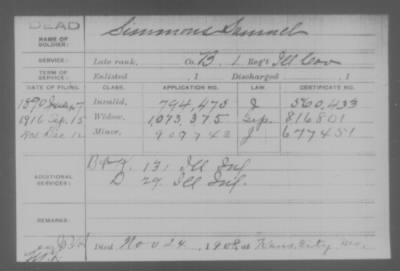 DEAD
NAME OF SOLDIER: Simmons Samuel
SERVICE: Late rank, Co. B, 1 Reg't Ill Cav
TERM OF SERVICE: Enlisted , 1 Discharged , 1
DATE OF FILING. CLASS. APPLICATION NO. LAW. CERTIFICATE NO.
1890 7 Invalid, 794,473 J 560,433
1916 Sep. 15 Widow, 1,073,375 Gen. 816801
Dec 12 Minor, 909742 J 677451
ADDITIONAL SERVICES: B & G. 131 Ill Inf.
D 29. Ill Inf.
REMARKS:
Died Nov 24, 1908, at Kans. City, Mo.